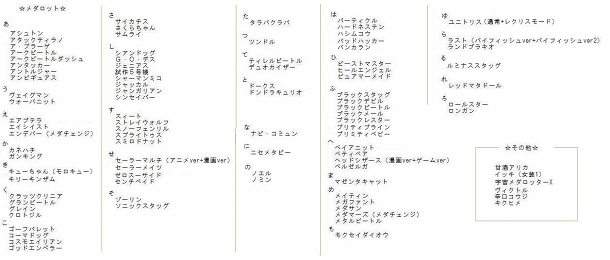 ☆メダロット☆
あ
アシュトン
アタックティラノ
ア・ブラーゲ
アークビートル
アークビートルダッシュ
アンタッカー
アントルジャー
アンビギュアス
う
ヴェイグマン
ウォーバニット
え
エアプテラ
エイシイスト
エンデバー(メダチェンジ)
か
カネハチ
ガンキング
き
キューちゃん(モロキュー)
キリーキンザム
く
クラッツクリニア
グランビートル
グレイン
クロトジル
こ
ゴーフバレット
コーマドッグ
コスモエイリアン
ゴッドエンペラー
さ
サイカチス
さくらちゃん
サムライ
し
シアンドッグ
G・O・デス
ジェニアス
試作5号機
シャーマンミコ
ジャッカル
ジャンガリアン
シンセイバー
す
スィート
ストレイウォルフ
スノーフェンリル
スプライトゥス
スミロドナット
せ
セーラーマルチ(アニメver+漫画ver)
セーラーメイツ
ゼロスーサイド
センチペイド
そ
ゾーリン
ソニックスタッグ
た
タラバクラバ
つ
ツンドル
て
ティレルビートル
デュオカイザー
と
ドークス
ドンドラキュリオ
な
ナビ・コミュン
に
ニセメタビー
の
ノエル
ノミン
は
パーティクル
ハードネステン
ハシムコウ
バッドハッカー
バンカラン
ひ
ビーストマスター
ヒールエンジェル
ピュアマーメイド
ふ
ブラックスタッグ
ブラックデビル
ブラックビートル
ブラックメール
ブラックレスター
プリティプライン
プリミティベビー
へ
ベイアニット
ペティペア
ヘッドシザース(漫画ver+ゲームver)
ベルゼルガ
ま
マゼンタキャット
め
メイティン
メガファント
メダサン
メダマーズ(メダチェンジ)
メタルビートル
も
モクセイダイオウ
ゆ
ユニトリス(通常+レクリスモード)
ら
ラスト(バイフィッシュver+バイフィッシュver2)
ランドブラキオ
る
ルミナススタッグ
れ
レッドマタドール
ろ
ロールスター
ロンガン
☆その他☆
甘酒アリカ
イッキ(女装1)
宇宙メダロッターX
ヴィクトル
辛口コウジ
キクヒメ